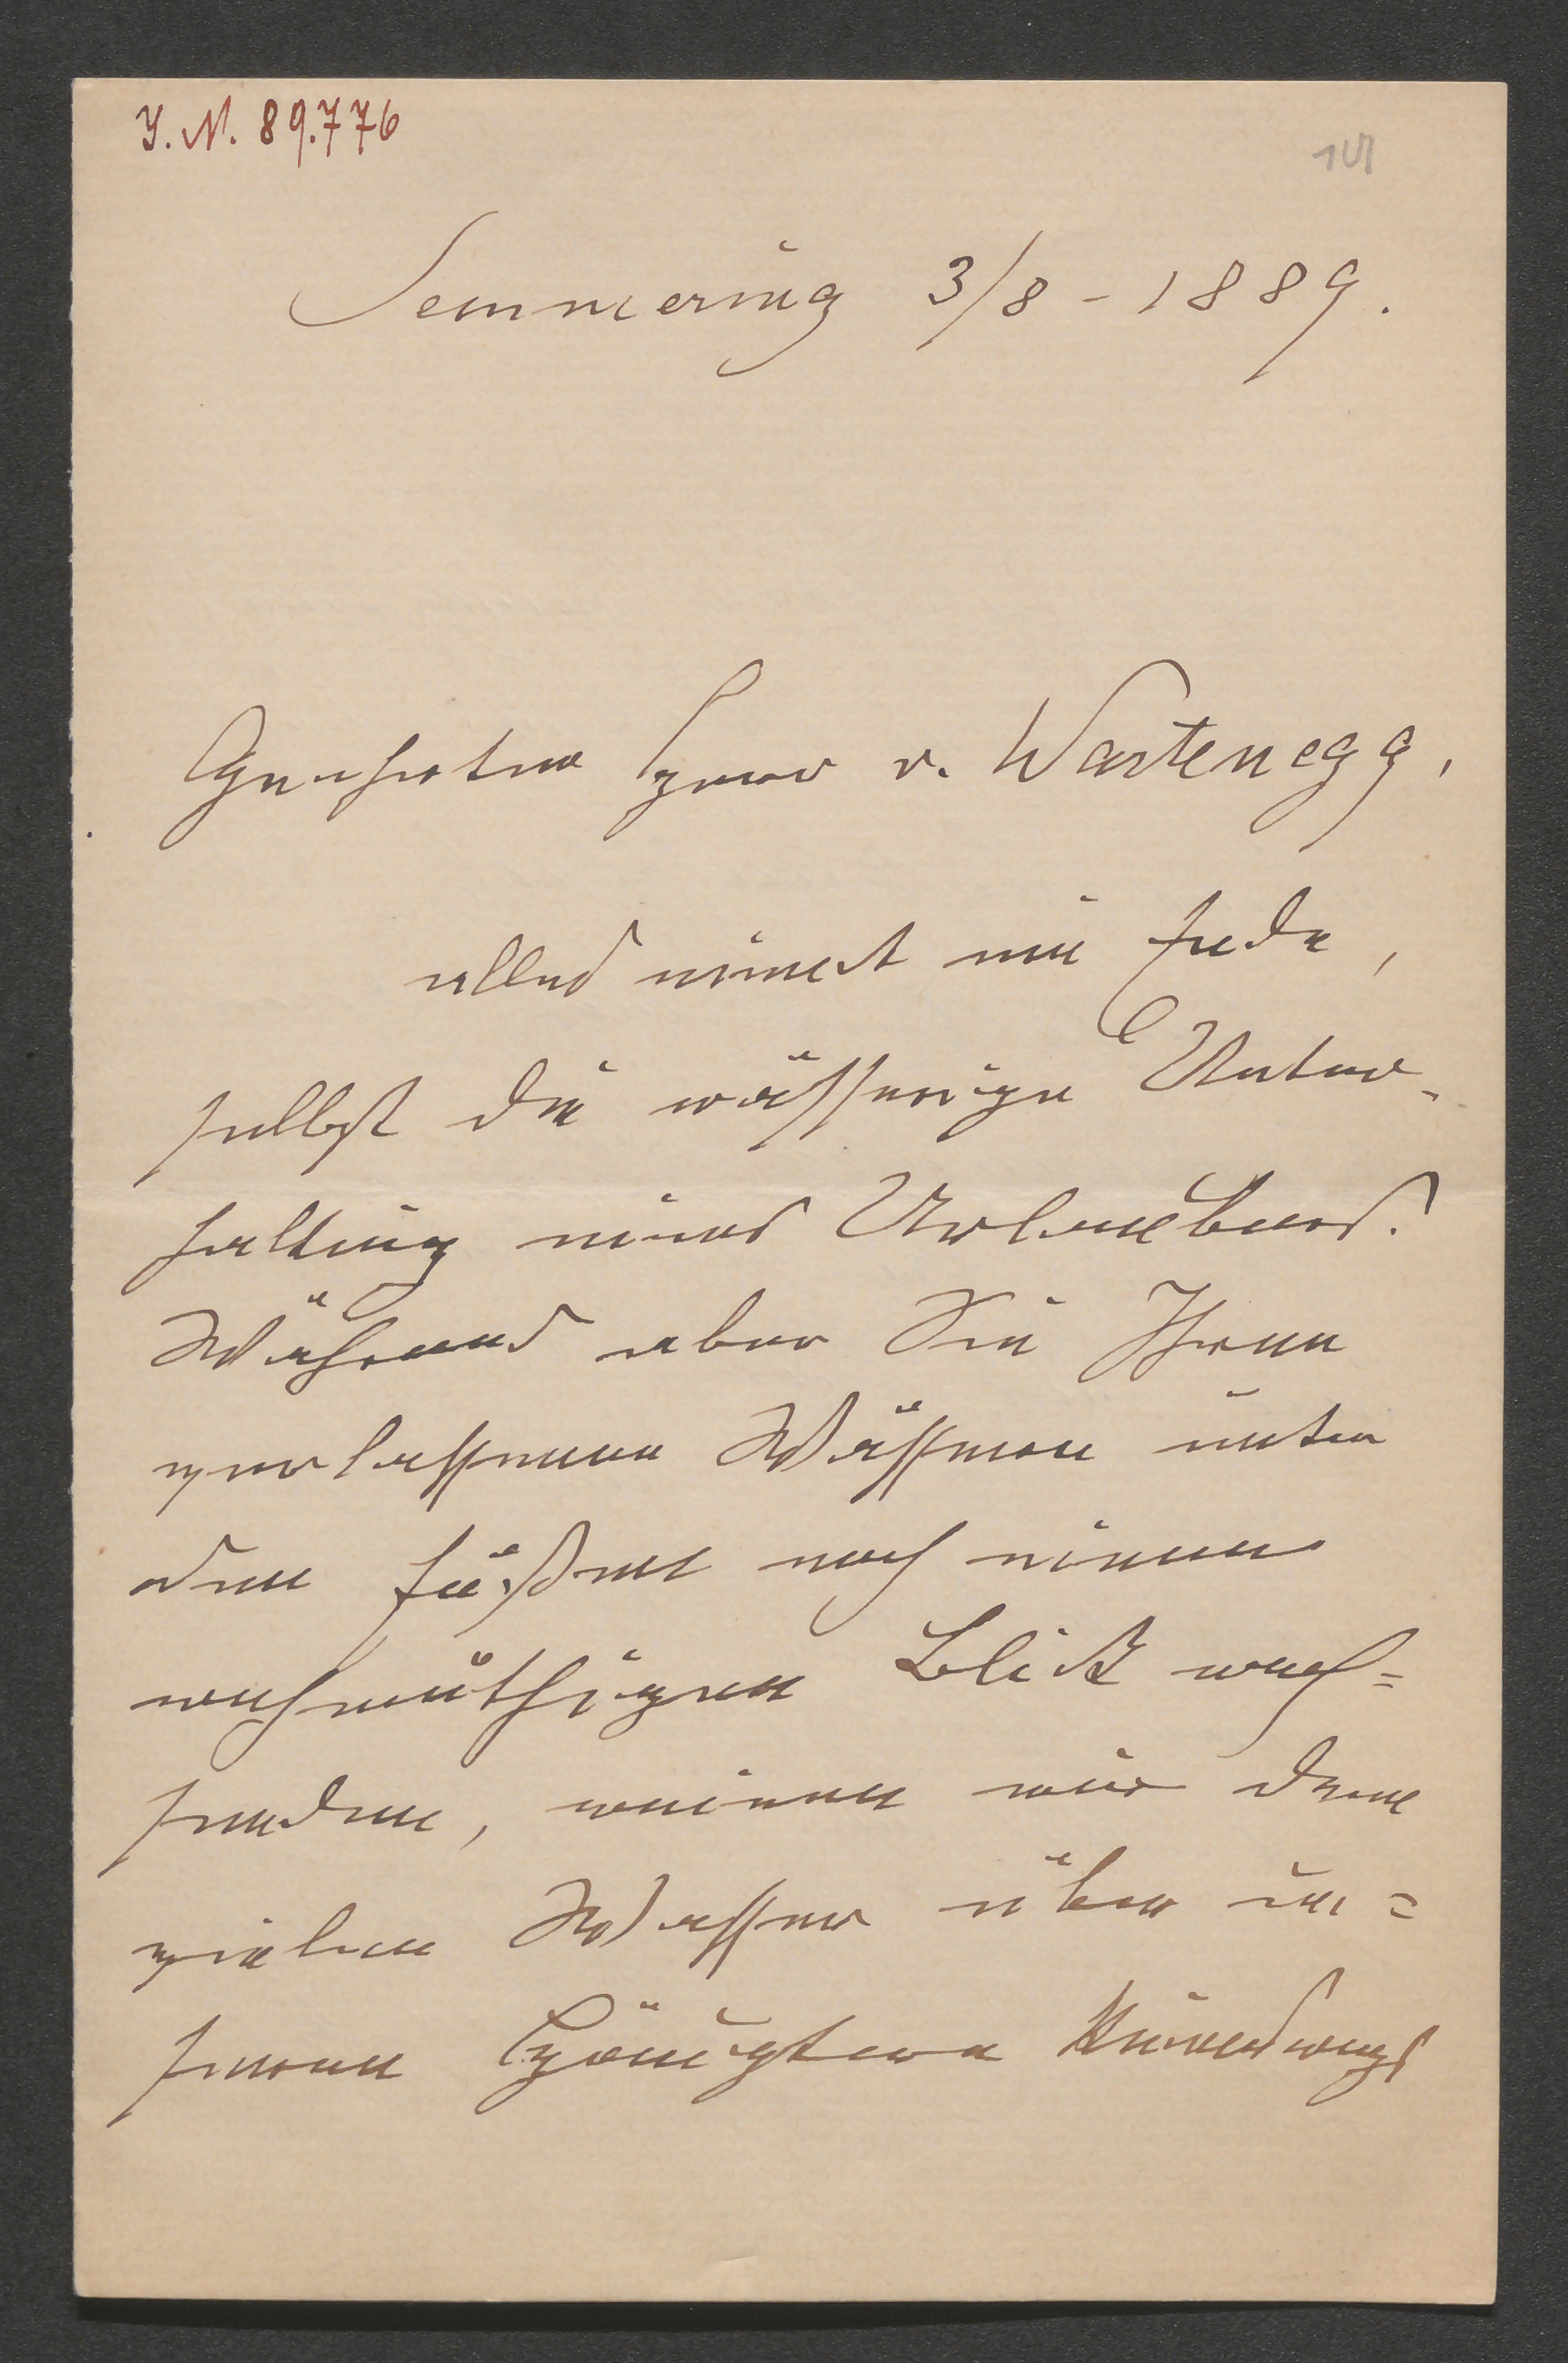 I. N. 89.776
Semmering 3/8 - 1889.
Geehrter Herr v. Wartenegg,
alles nimmt ein Ende,
selbst die wässerige Unter-
haltung eines Urlaubers.
Während aber Sie Ihren
verlassenen Wässern unter
den Füßen noch einen
wehmüthigen Blick nach=
senden, weinen wir dem
vielen Wasser über un=
seren Häuptern